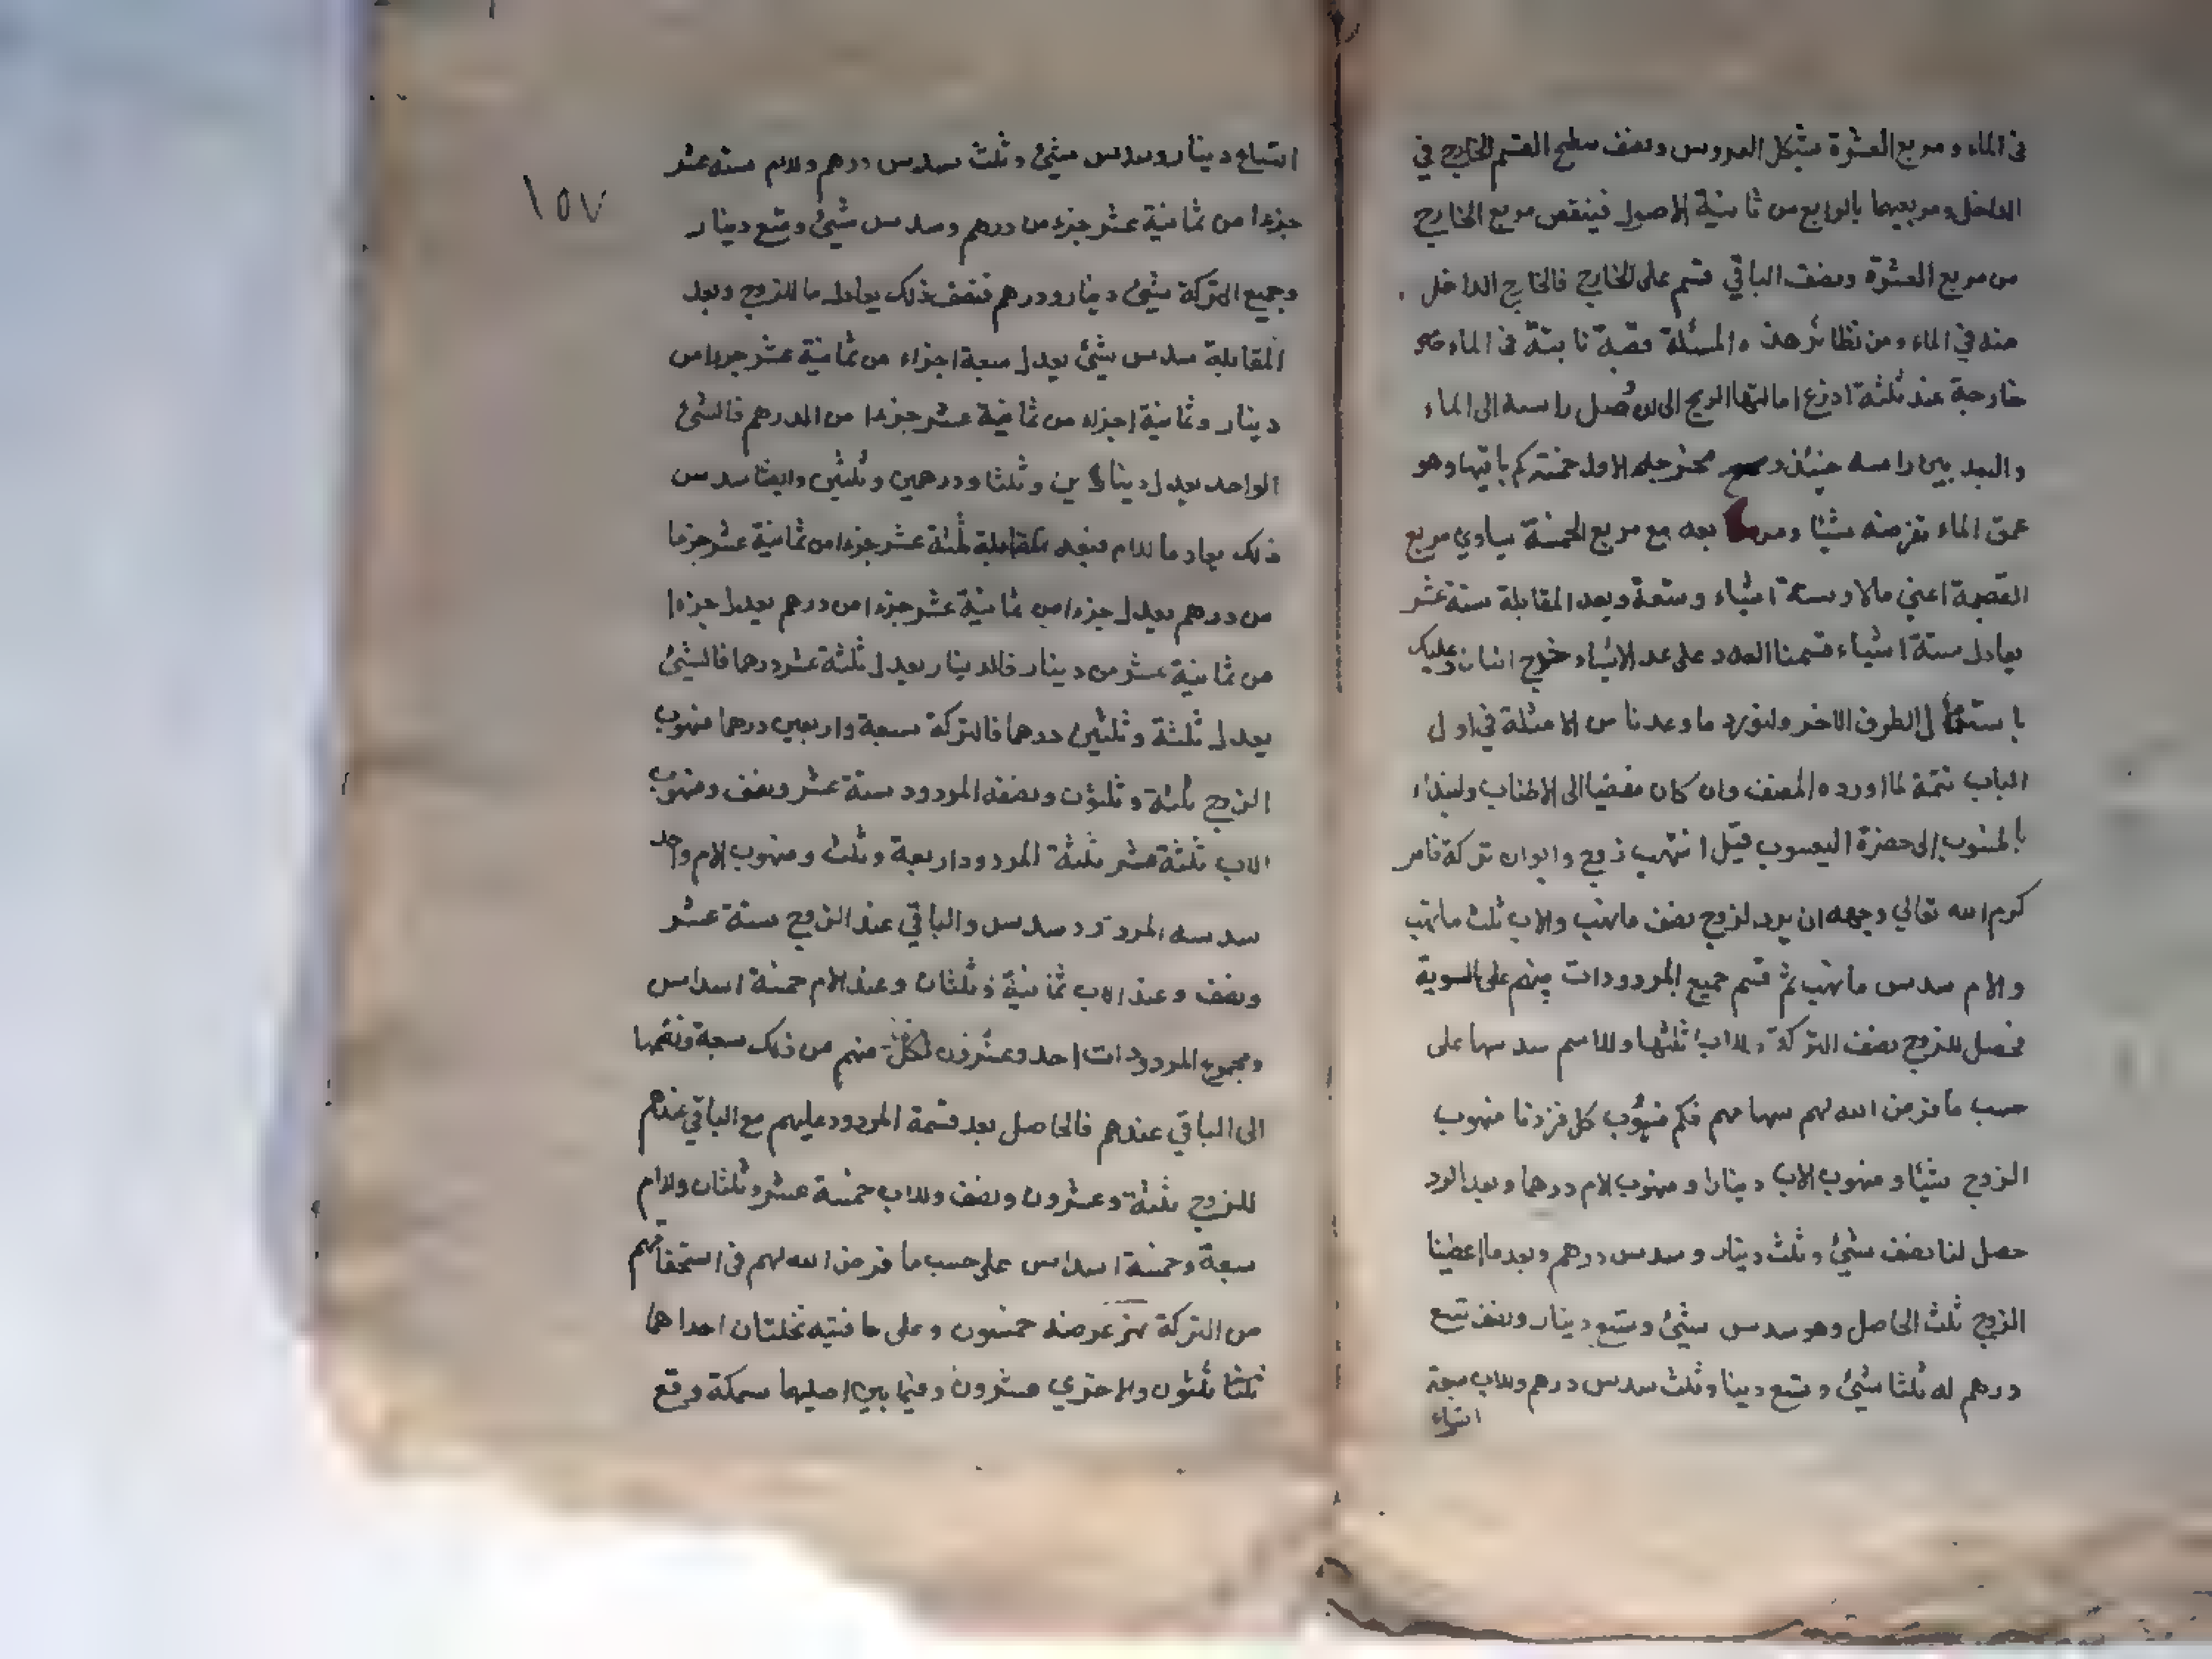 في الماء و مربع العشرة بشكل العروس ونصف سطح القسم الخارج في
الداخل ومربعيهما بالرابع من ثانية الاصول فينقص مربع الخارج
من مربع العشرة ونصف الباقي قسم على الخارج فالخارج الداخل
منه في الماء ومن نظائر هذه المسئلة قصبة نابتة في الماء
خارجة عنه ثلثة اذرع امالتها الريح الى ان وصل راسه الى الماء
والبعد بين راسه حينئذ و مخرجله الاول خمسة كم باقيها وهو
عمق الماء نفرضه شيئا بعه مع مربع الخمسة يساوي مربع
القصبة اعني مالا وستة اشياء وتسعة وبعد المقابلة ستة عشر
يعادل ستة اشياء قسمنا العدد على عدد الاشياء خرج اثنان وعليك
باستعمال الطرف الاخر ولنورد ما وعدنا من الامثلة في اول
الباب تتمة لما اورده المصنف وان كان مفضيا الى الاطناب ولنبدا
بالمنسوب الى حضرة اليعسوب قيل انتهب زوج وابوان تركة فامر
كرم الله تعالي وجهه ان يرد الزوج نصف ما نهب والاب ثلث ما نهب
والام سدس ما نهب ثم قسم جميع المردودات بينهم على السوية
فحصل للزوج نصف التركة وللاب ثلثها وللام سدسها على
حسب ما فرض الله لهم سهامهم فكم منهوب كل فرضنا منهوب
الزوج شيئا و منهوب الاب دينارا و منهوب الام درهما وبعد الرد
حصل لنا نصف شئ وثلث دينار وسدس درهم وبعد ما اعطينا
الزوج ثلث الحاصل وهو سدس شئ وتسع دينار ونصف تسع
درهم له ثلثا شئ وتسع دينا وثلث سدس درهم وللاب سبعة
اتساع
١٥٧
اتساع دينار وسدس شئ وثلث سدس درهم وللام سته عشر
جزءا من ثمانية عشر جزء من درهم وسدس شئ وتسع دينار
وجميع التركة شئ دينار ودرهم فنصف ذلك يعادل ما للزوج وبعد
المقابلة سدس شئ يعدل سبعة اجزاء من ثمانية عشر جزءا من
دينار وثمانية اجزاء من ثمانية عشر جزءا من الدرهم فالشئ
الواحد يعدل دينارين وثلثا ودرهمين وثلثين وايضا سدس
ذلك يعاد ما للام فبعد المقابلة ثلثة عشر جزءا من ثمانية عشر جزءا
من درهم يعدل جزءا من ثمانية عشر جزءا من درهم يعدل جزءا
من ثمانية عشر من دينار فالدينار يعدل ثلثة عشر درهما فالشئ
يعدل ثلثة وثلثين درهما فالتركة سبعة واربعين درهما منهوب
الزوج ثلثة وثلثون ونصفه المردود ستة عشر ونصف ومنهوب
الاب ثلثة عشر ثلثة المردود اربعة وثلث ومنهوب الام واحد
سدسه المردود سدس والباقي عند الزوج ستة عشر
ونصف وعند الاب ثمانية وثلثان وعند الام خمسة اسداس
ومجموع المردودات احد وعشرون لكل منهم من ذلك سبعة ونضمها
الى الباقي عندهم فالحاصل بعد قسمة المردود عليهم مع الباقي عندهم
للزوج ثلثة وعشرون ونصف وللاب خمسة عشر وثلثان وللام
سبعة وخمسة اسداس على حسب ما فرض الله لهم في استحقاقهم
من التركة نهر عرضه خمسون وعلى حافتيه نخلتان احداهما
ثلثا ثلثون والاخري عشرون وفيما بين اصليهما سمكة وقع